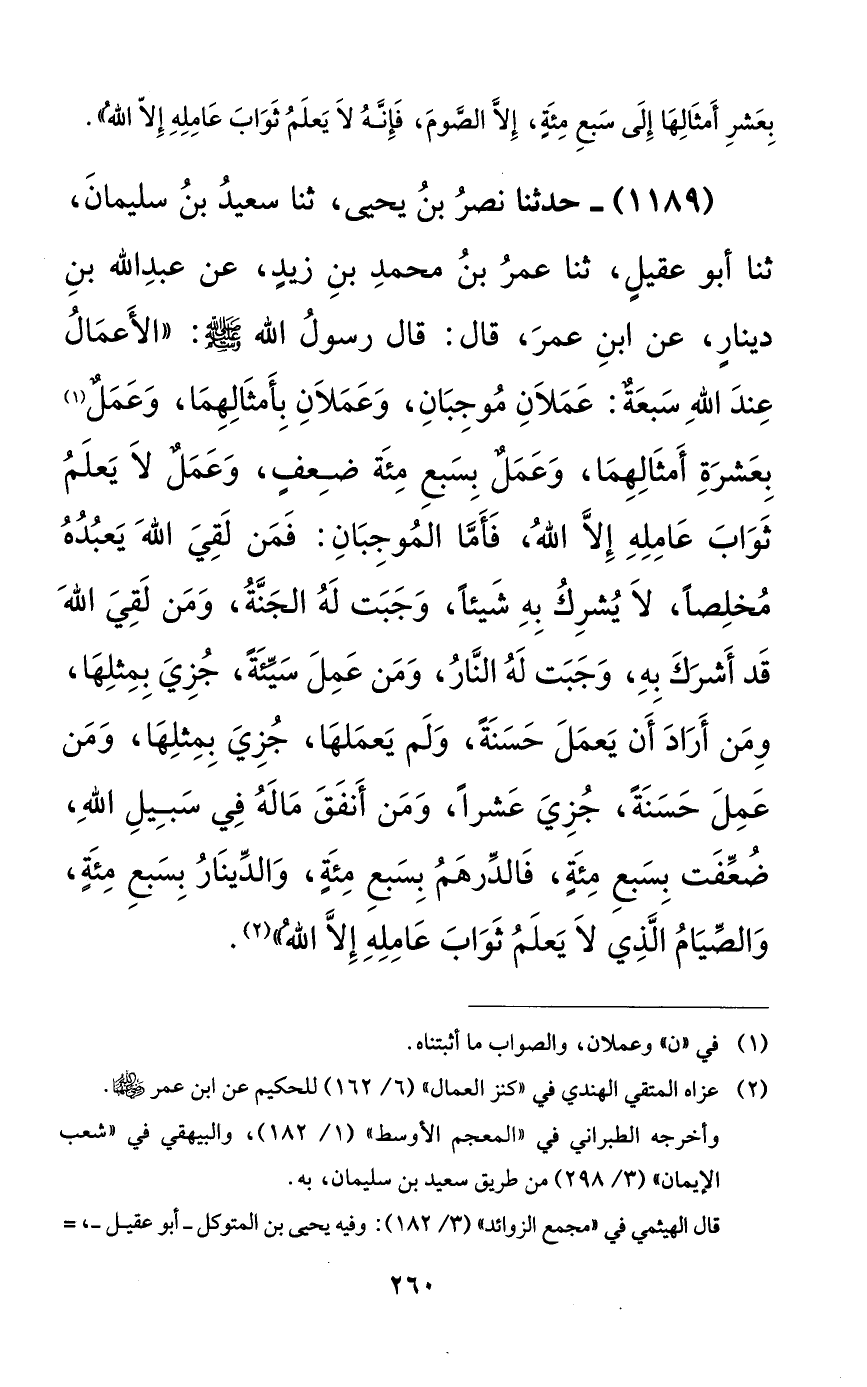 بِعَشرِ أَمثَالِهَا إِلَى سَبعِ مِئَةٍ، إِلاَّ الصَّومَ، فَإِنَّهُ لاَ يَعلَمُ ثَوَابَ عَامِلِهِ إِلاّ اللهُ».
(١١٨٩) ـ حدثنا نصرُ بنُ يحيى، ثنا سعيدُ بنُ سليمانَ،
ثنا أبو عقيلٍ، ثنا عمرُ بنُ محمدِ بنِ زيدٍ، عن عبدِالله بنِ
دينارٍ، عن ابنِ عمرَ، قال: قال رسولُ الله ﷺ: «الأَعمَالُ
عِندَ اللهِ سَبعَةٌ: عَمَلاَنِ مُوجِبَانِ، وَعَمَلاَنِ بِأَمثَالِهِمَا، وَعَمَلٌ(١)
بِعَشرَةِ أَمثَالِهِمَا، وَعَمَلٌ بِسَبعِ مِئَة ضِعفٍ، وَعَمَلٌ لاَ يَعلَمُ
ثَوَابَ عَامِلِهِ إِلاَّ اللهُ، فَأَمَّا المُوجِبَانِ: فَمَن لَقِيَ اللهَ يَعبُدُهُ
مُخلِصاً، لاَ يُشرِكُ بِهِ شَيئاً، وَجَبَت لَهُ الجَنَّةُ، وَمَن لَقِيَ اللهَ
قَد أَشرَكَ بِهِ، وَجَبَت لَهُ النَّارُ، وَمَن عَمِلَ سَيِّئَةً، جُزِيَ بِمِثلِهَا،
ومَن أَرَادَ أَن يَعمَلَ حَسَنَةً، وَلَم يَعمَلهَا، جُزِيَ بِمِثلِهَا، وَمَن
عَمِلَ حَسَنَةً، جُزِيَ عَشراً، وَمَن أَنفَقَ مَالَهُ فِي سَبِيلِ اللهِ،
ضُعِّفَت بِسَبعِ مِئَةٍ، فَالدِّرهَمُ بِسَبعِ مِئَةٍ، وَالدِّينَارُ بِسَبعِ مِئَةٍ،
وَالصِّيَامُ الَّذِي لاَ يَعلَمُ ثَوَابَ عَامِلِهِ إِلاَّ اللهُ»(٢).
(١) في «ن» وعملان، والصواب ما أثبتناه.
(٢) عزاه المتقي الهندي في «كنز العمال» (٦/ ١٦٢) للحكيم عن ابن عمر رضي الله عنهما.
وأخرجه الطبراني في «المعجم الأوسط» (١/ ١٨٢)، والبيهقي في «شعب
الإيمان» (٣/ ٢٩٨) من طريق سعيد بن سليمان، به.
قال الهيثمي في «مجمع الزوائد» (٣/ ١٨٢): وفيه يحيى بن المتوكل ـ أبو عقيل ـ، =
٢٦٠